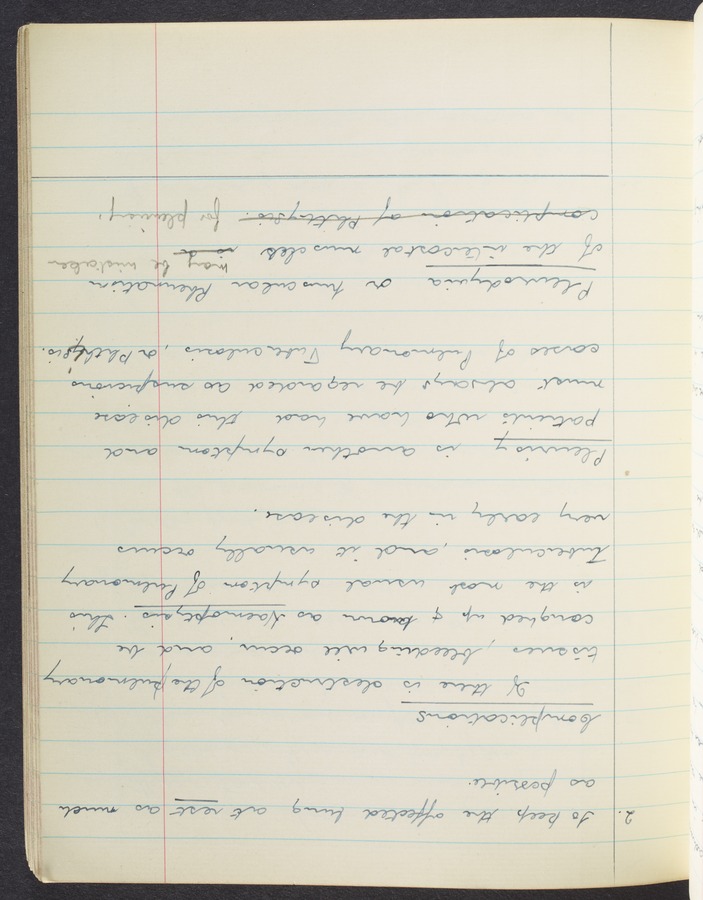 2. To keep the affected lung at rest as much
as possible.
Complications
If there is destruction of the pulmonary
tissues, bleeding will occur, and be
coughed up & known as Haemoptysis. This
is the most usual symptom of Pulmonary
Tuberculosis, and it usually occurs
very early in the disease.
Pleurisy is another symptom and
patients who have had this disease
must always be regarded as suspicious
cases of Pulmonary Tuberculosis, or Phthysis.
Pleurodynia or Muscular Rheumatism
of the intercostal muscles is a may be mistaken
complication of Phthysis. for pleurisy.